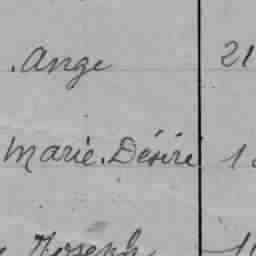 . Ange 21
Marie. Désiré 1
Joseph